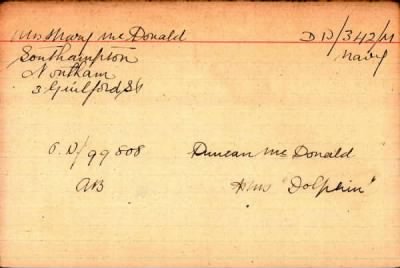 Mrs Mary McDonald D D/342/M
Southampton Navy
Northam
3 Guilford St
O.N/99808 Duncan McDonald
AB HMS "Dolphin"